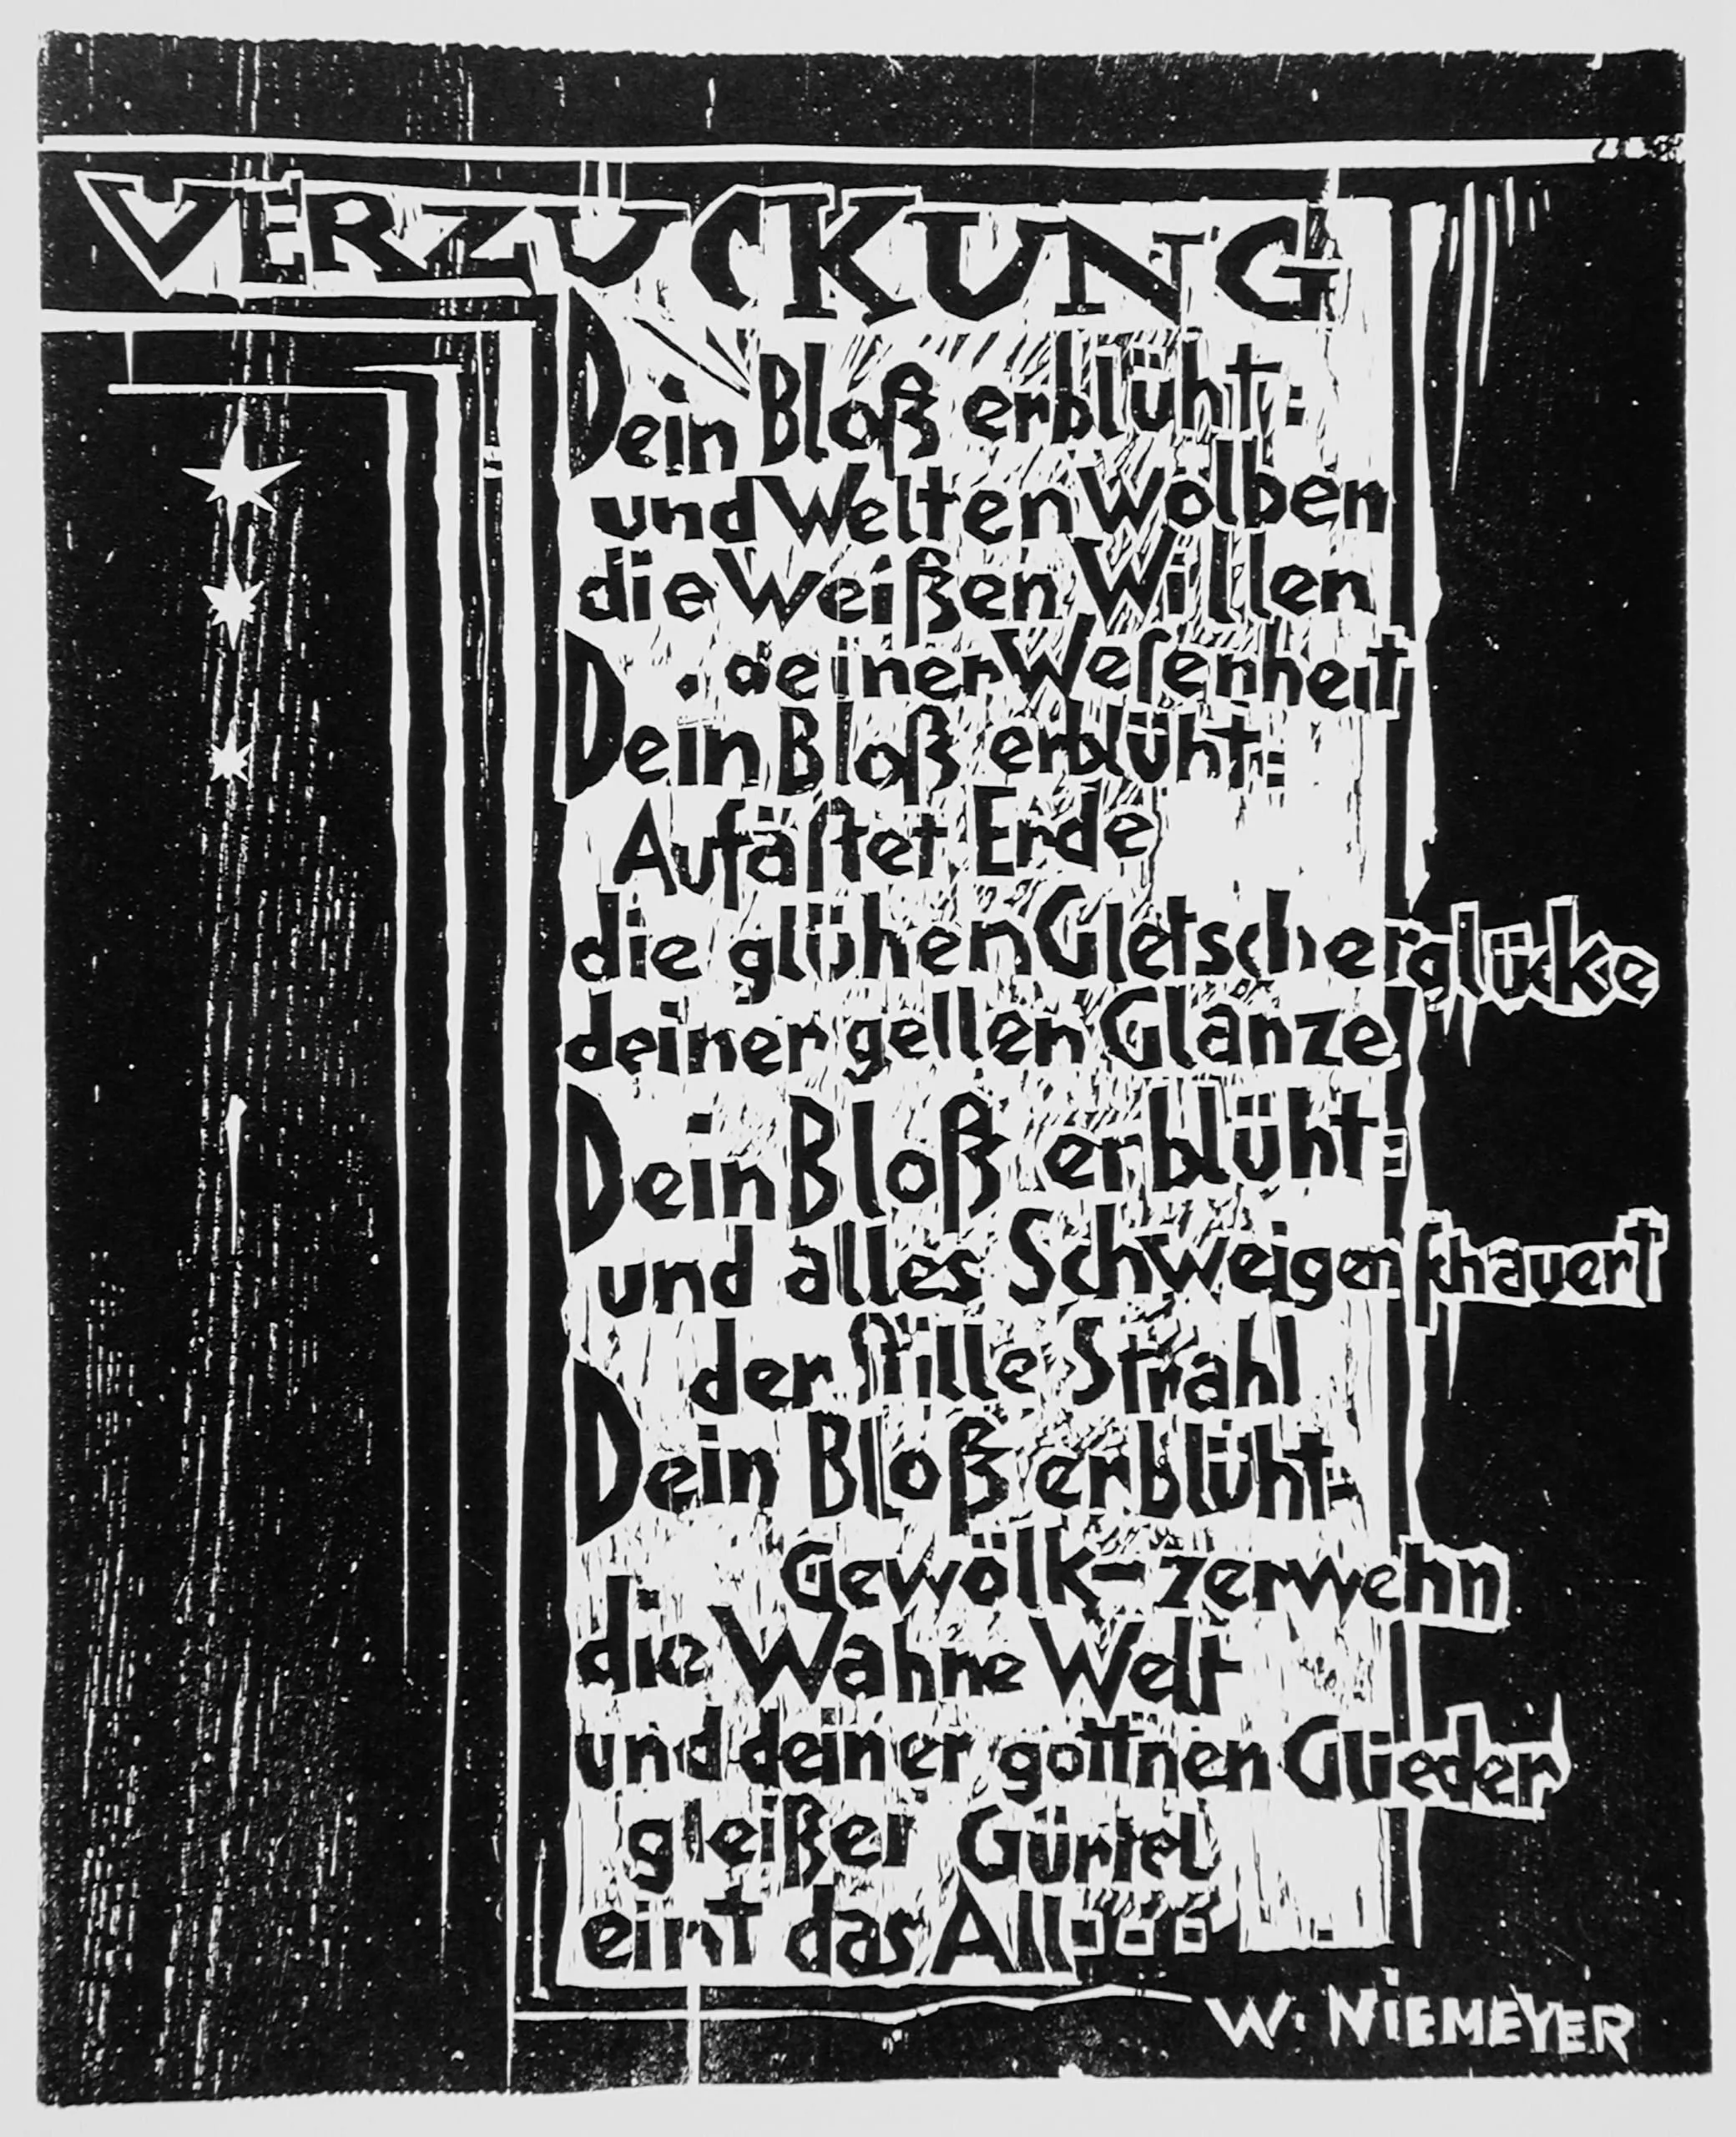 VERZÜCKUNG
Dein Bloß erblüht:
und Welten Wölben
die Weißen Willen
deiner Weſenheit
Dein Bloß erblüht:
Aufäſtet Erde
die glühen Gletscherglücke
deiner gellen Glänze
Dein Bloß erblüht:
und alles Schweigen ſchauert
der ſtille Strahl
Dein Bloß erblüht:
Gewölk-zerwehn
die Wahne Welt
und deiner gottnen Glieder
gleißer Gürtel
eint das All:
W. NiEMEYER